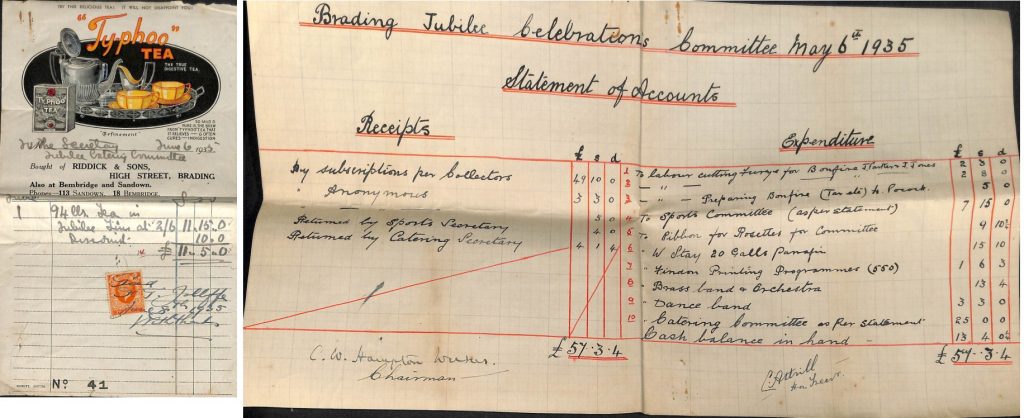 TRY THIS DELICIOUS TEA! IT WILL NOT DISAPPOINT YOU!
"Ty·phoo"
TEA
THE TRUE
DIGESTIVE TEA
TYPHOO
TEA
"Refinement"
SO MILD &
PURE IS THE BREW
FROM TYPHOO TEA THAT
IT RELIEVES — & OFTEN
CURES — INDIGESTION
To the Secretary June 6. 1935
Jubilee Catering Committee
Bought of RIDDICK & SONS,
HIGH STREET, BRADING
Also at Bembridge and Sandown.
Phones—113 SANDOWN. 18 BEMBRIDGE.
94 lbs Tea in
Jubilee Tins at 2/6 11.15.0
Discount 10.0
£ 11.5.0
Paid
1935
With thanks
No. 41
Brading Jubilee Celebrations Committee May 6th 1935
Statement of Accounts
Receipts
£ s d
By subscriptions per Collectors 49 10 0
" Anonymous 3 3 0
Returned by Sports Secretary 5 0
Returned by Catering Secretary 4 0
4 1 4
£ 57.3.4
C. W. Hampton
Chairman
Expenditure
£ s d
1 To labour cutting Furze for Bonfire 2 3 0
2 2 8 0
3 " Preparing Bonfire 5 0
4 To Sports Committee (as per statement) 7 15 0
5 To Ribbon for Rosettes for Committee 9
6 " W Stay 20 Galls 15 10
7 " Printing Programmes (550) 1 6 3
8 " Brass band & Orchestra 13 4
9 " Dance band 3 3 0
10 " Catering Committee as Per statement 25 0 0
Cash balance in hand 13 4
£ 57.3.4